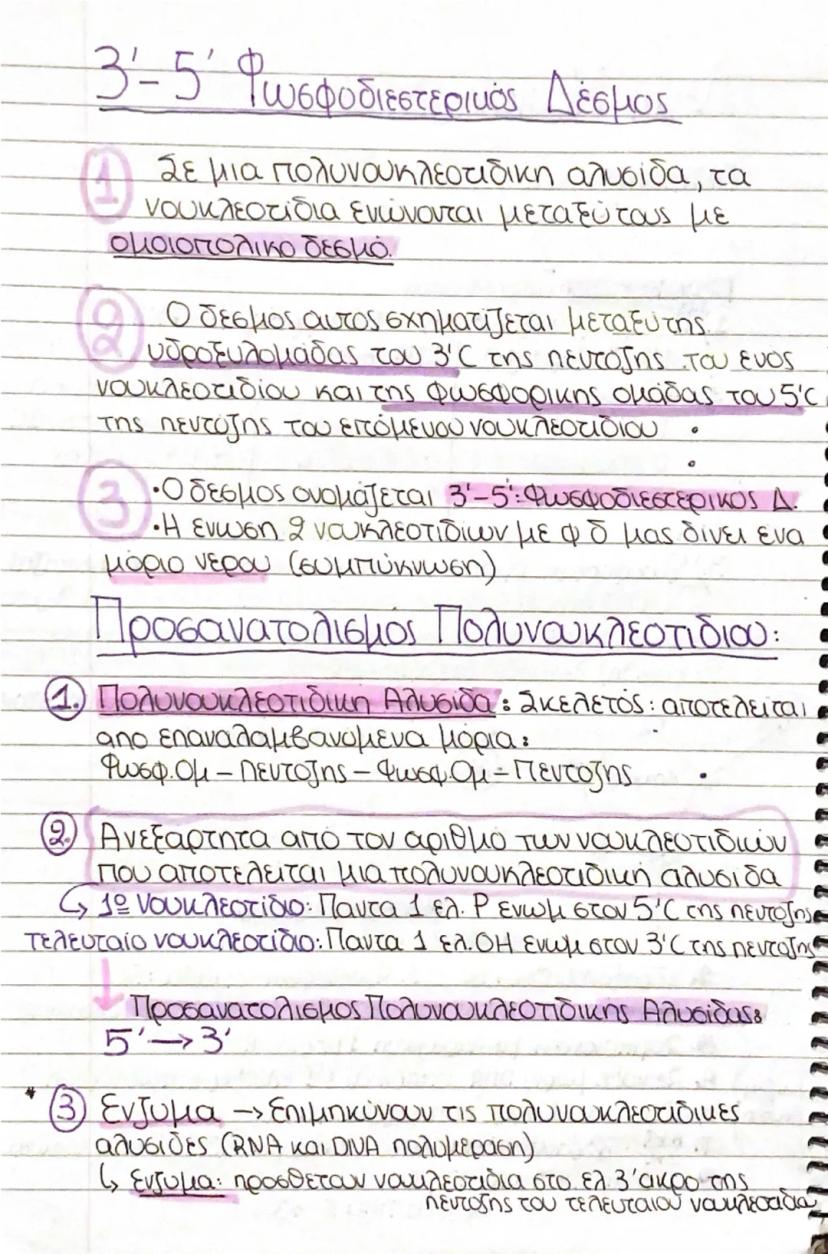 3'-5' Φωσφοδιεστερικός Δέσμος
1 Σε μια πολυνουκλεοτιδικη αλυσίδα, τα
νουκλεοτίδια ενώνονται μεταξύ τους με
ομοιοπολικο δεσμό.
2 Ο δεσμος αυτος σχηματίζεται μεταξυ της
υδροξυλομάδας του 3'C της πεντοζης του ενος
νουκλεοτιδίου και της φωσφορικης ομάδας του 5'C
της πεντόζης του επόμενου νουκλεοτιδίου
3 •Ο δεσμος ονομάζεται 3'-5': Φωσφοδιεστερικος Δ.
•Η ενωση 2 νουκλεοτιδίων με φ δ μας δίνει ενα
μόριο νερου (συμπύκνωση)
Προσανατολισμός Πολυνουκλεοτιδιου:
1. Πολυνουκλεοτιδικη Αλυσίδα: Σκελετός: αποτελειται
απο επαναλαμβανομενα μόρια:
Φωσφ. Ομ - Πεντοζης - Φωσφ. Ομ - Πεντοζης
2. Ανεξαρτητα από τον αριθμό των νουκλεοτιδιών
που αποτελείται μια πολυνουκλεοτιδική αλυσιδα
↳ 1º νουκλεοτίδιο: Παντα 1 ελ. P ενωμ στον 5'C της πεντοζης
τελευταίο νουκλεοτίδιο: Παντα 1 ελ. OH ενωμ στον 3'C της πεντοζης
↓ Προσανατολισμος Πολυνουκλεοτιδικης Αλυσίδας:
5' → 3'
* 3 Ενζυμα → Επιμηκύνουν τις πολυνουκλεοτιδικες
αλυσιδες (RNA και DNA πολυμεραση)
↳ Ενζυμα: προσθετουν νουκλεοτιδια στο ελ. 3' ακρο της
πεντοζης του τελευταιου νουκλεοτιδιου